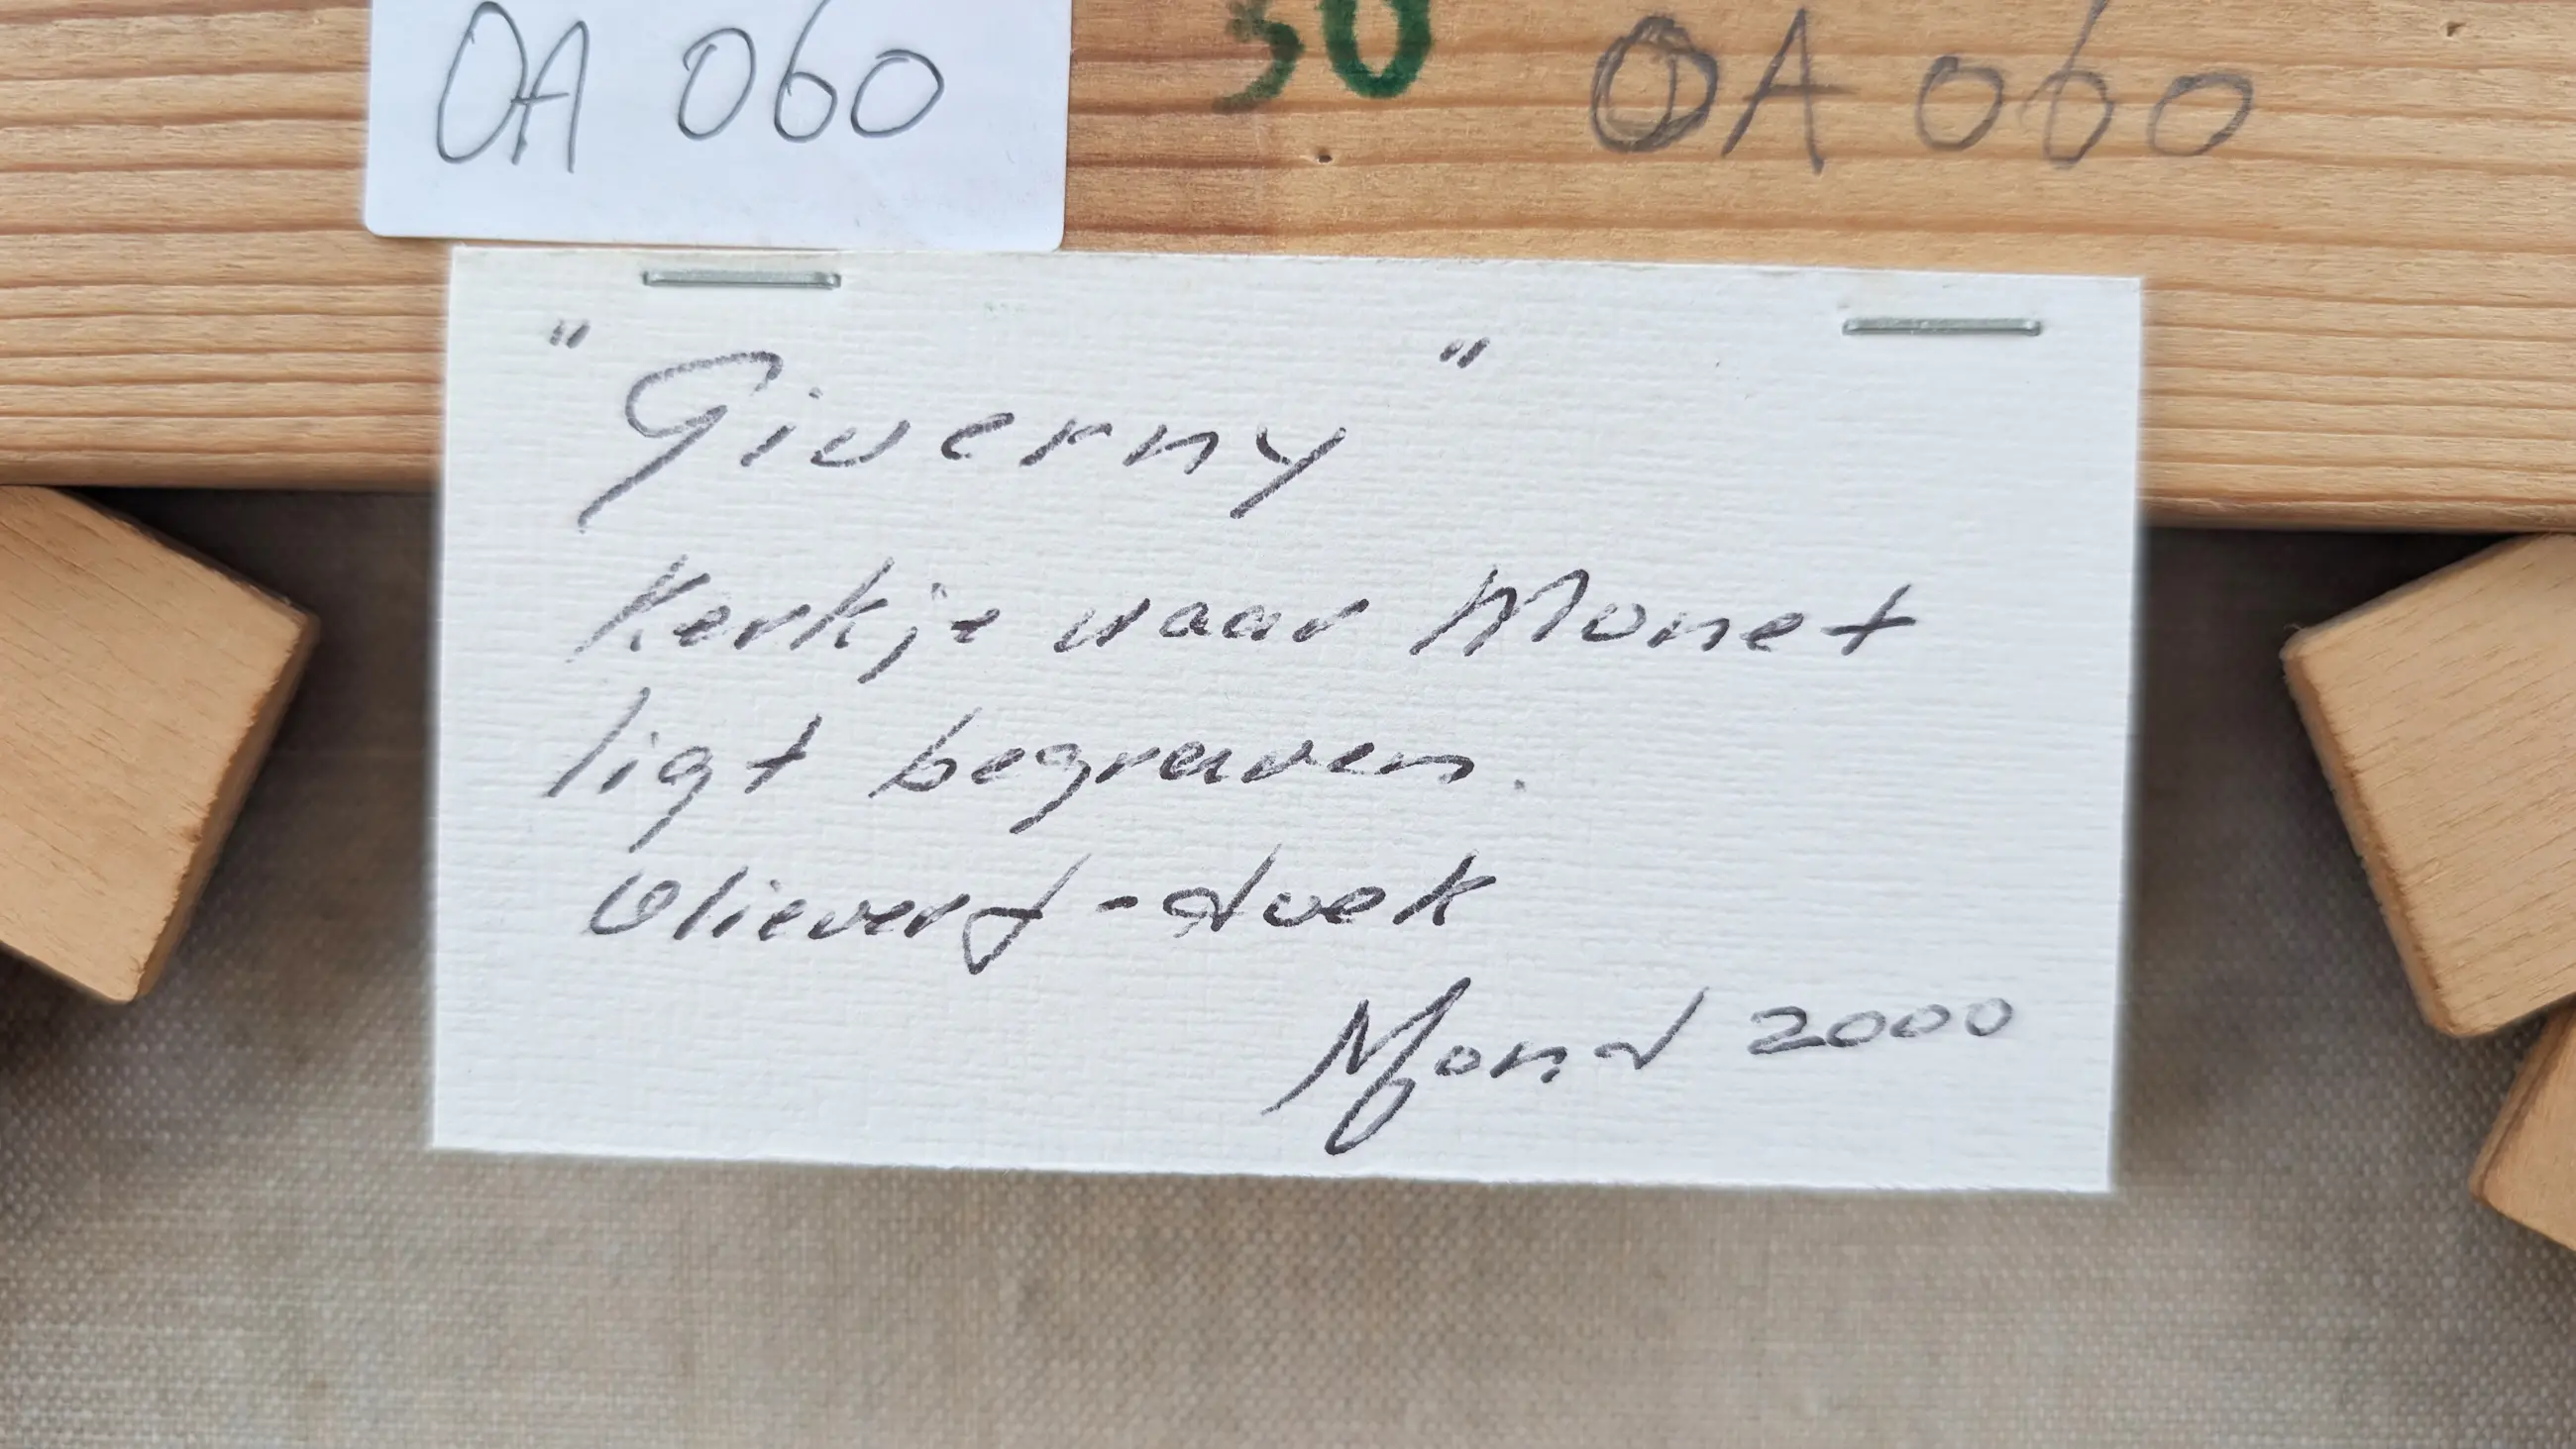 OA 060
30
OA 060
"Giverny"
Kerkje waar Monet
ligt begraven.
Olieverf-doek
2000